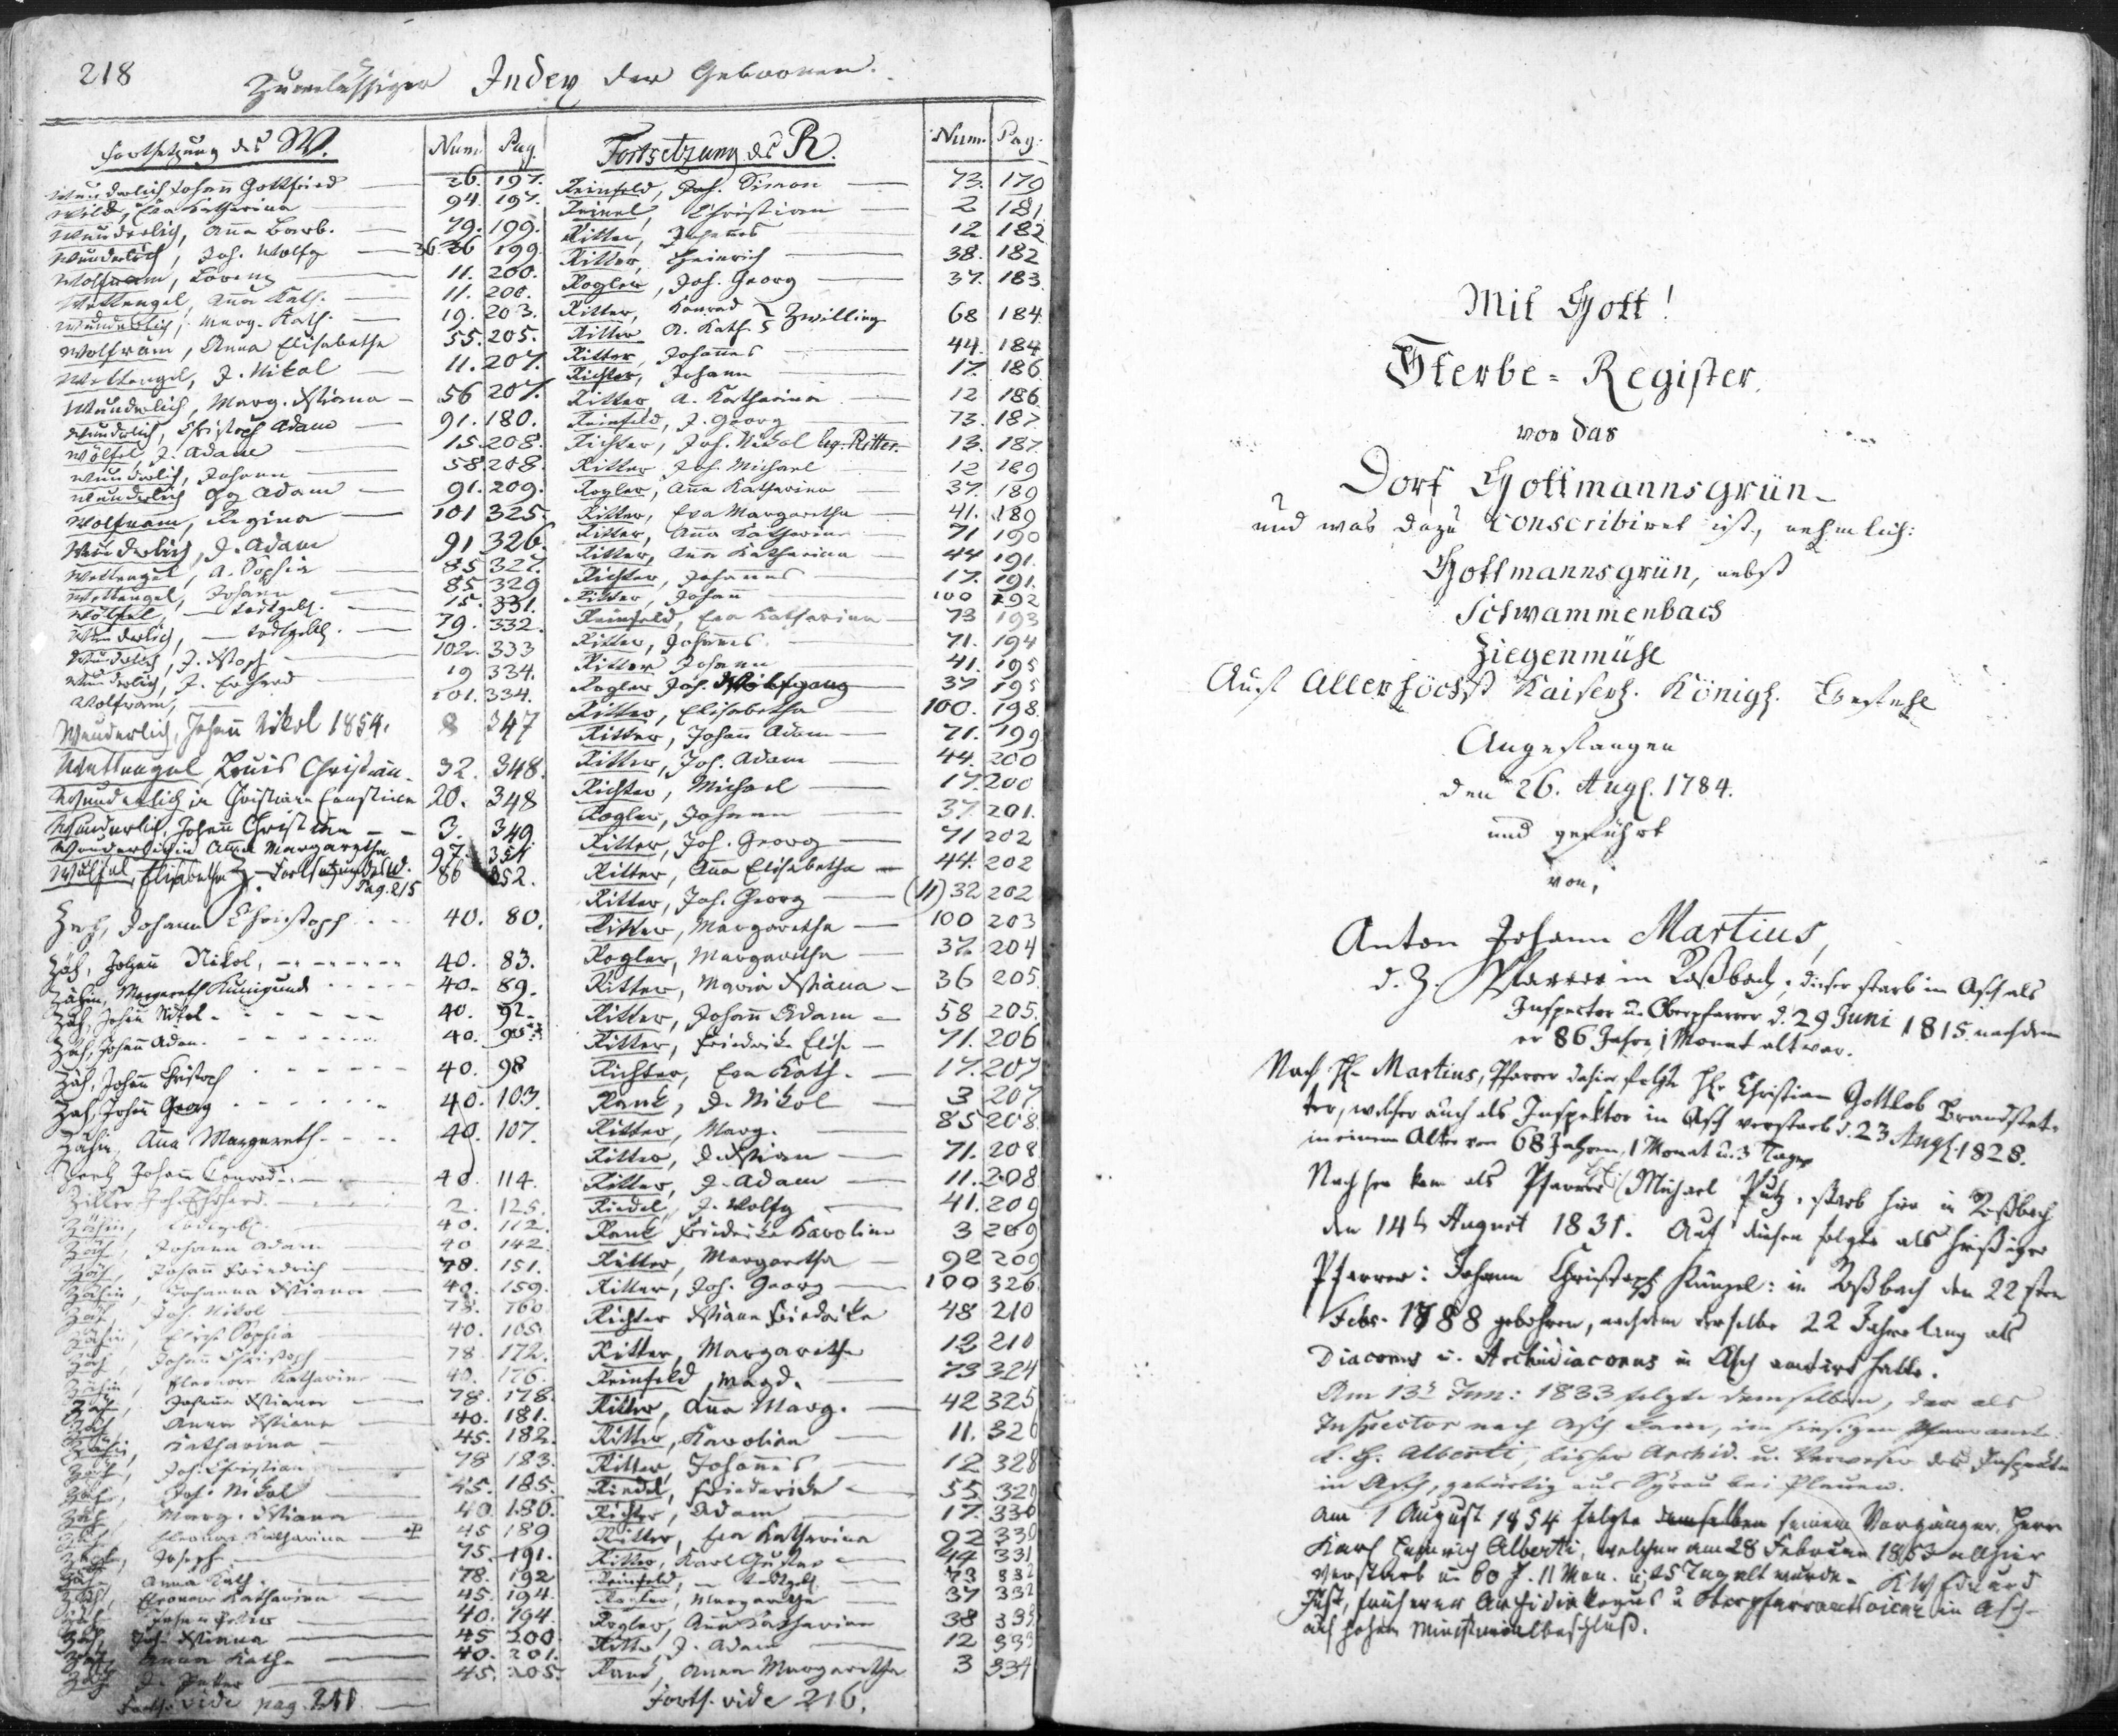 218
Zuverlässiger Index der Gebornen.
Fortsetzung des W.
Num. Pag.
Wunderlich Johañ Gottfried 26. 197.
Wild, Eva Katharina 94. 197.
Wunderlich, Aña Barb. 79. 199.
Wunderlich, Joh. Wolfg 36 199
Wolfram, Lorenz 11. 200.
Wettengel, Aña Kath. 11. 200.
Wunderlich, Marg. Kath. 19. 203.
Wolfram, Anna Elisabetha 55. 205.
Wettengel, J. Nikol 11. 207.
Wunderlich, Marg. Xstiana 56 207.
Wunderlich, Christoph Adam 91. 180.
Wölfel, J. Adam 15. 208.
Wunderlich, Johann 58. 208.
Wunderlich Gg Adam 91. 209.
Wolfram, Regina 101 325.
Wunderlich, J. Adam 91 326.
Wettengel, A. Sophia 85 327.
Wettengel, Johann 85 329
Wölfel, — todtgeb. 15. 331.
Wunderlich, — todtgeb. 79. 332.
Wunderlich, J. Xstoph 102. 333
Wunderlich, J. Erhard 19 334.
Wolfram, — 101. 334.
Wunderlich, Johañ Nikol 1854. 8 347
Wettengel, Louis Christian 32. 348.
Wunderlich in Christiane Ernstine 20. 348
Wunderlich, Johañ Christian 3. 349
Wunderlichin Aña Margaretha 97. 351
Wölfel, Elisabetha 86 352.
Z. Fortsetzung des W. Pag. 215
Zeh, Johann Christoph 40. 80.
Zäh, Johañ Nikol, 40. 83.
Zähin, Margareth Kunigund 40. 89.
Zäh, Johañ Nikol 40. 92.
Zäh, Johañ Adam. 40. 95.
Zäh, Johañ Christoph 40. 98
Zäh, Johañ Georg 40. 103.
Zähin, Aña Margareth 40. 107.
Johañ Conrad 40. 114.
Joh. Erhard 2. 125.
Zähin, todtgeb. 40. 112.
Zäh, Johann Adam 40 142.
Zäh, Johañ Friedrich 78. 151.
Zähin, Johanna Xstiana 40. 159.
Zäh, Joh. Nikol 78. 160
Zähin, Elis. Sophia 40. 165
Zäh, Johañ Christoph 78. 172.
Zähin, Eleonore Katharina 40. 176.
Zäh, Johaña Xstiana 78. 178.
Zäh, Anna Xstiana 40. 181.
Zähin, Katharina 45. 182.
Zäh, Joh. Christian 78 183.
Zäh, Joh. Nikol 45. 185.
Zäh, Marg. Xstiana 40. 186.
Zäh, Eleonore Katharina 45 189
Zäh, Joseph 75. 191.
Zäh, Anna Kath. 78. 192
Zäh, Eleonore Katharina 45. 194
Zäh, Johann 40. 194.
Zäh, Joh. Xstiana 45 200
Zäh, Anna Kath. 40. 201.
Zäh, J. Peter 45. 205.
Forts. vide pag. 211.
Fortsetzung des R.
Num. Pag.
Reinfeld, Joh. Simon 73. 179
Christian 2 181
Ritter, Johannes 12 182
Ritter, Heinrich 38. 182
Rogler, Joh. Georg 37. 183
Ritter, Konrad
Ritter A. Kath. } Zwilling 68 184
Ritter, Johannes 44. 184
Richter, Johann 17. 186
Ritter, A. Katharina 12 186
Reinfeld, J. Georg 73. 187
Richter, Joh. Nikol leg. Ritter. 13. 187.
Ritter Joh. Michael 12 189
Rogler, Aña Katharina 37. 189
Ritter, Eva Margaretha 41. 189
Ritter, Aña Katharina 71 190
Ritter, Aña Katharina 44 191.
Richter, Johannes 17. 191.
Ritter, Johañ 100 192
Reinfeld, Eva Katharina 73 193
Ritter, Johañes 71. 194
Ritter Johann 41. 195
Rogler Joh. Wolfgang 37 195
Ritter, Elisabetha 100. 198.
Ritter, Johan Adam 71. 199
Ritter, Joh. Adam 44. 200
Richter, Michael 17. 200
Rogler, Johann 37. 201.
Ritter, Joh. Georg 71 202
Ritter, Aña Elisabetha 44. 202
Ritter, Joh. Georg (11) 32 202
Ritter, Margaretha 100 203
Rogler, Margaretha 37. 204
Ritter, Maria Xstiana 36 205
Ritter, Johañ Adam 58 205.
Ritter, Friederike Elise 71. 206
Richter, Eva Kath. 17. 207
Rank, J. Nikol 3 207
Ritter, Marg. 85 208.
Ritter, J. Xstian 71. 208
Ritter, J. Adam 11. 208
Riedel, J. Wolfg 41. 209
Rank Friederike Karoline 3 209
Ritter, Margaretha 92 209
Ritter, Joh. Georg 100 326
Richter Xstiana Friederike 48 210
Ritter, Margaretha 12 210
Reinfeld, Magd. 73 324
Ritter, Aña Marg. 42 325
Ritter, Karolina 11. 326
Ritter, Johañes 12 328
Riedel, Friederike 55. 329
Richter, Adam 17. 330
Ritter, Eva Katharina 92 330
Ritter, Karl Gustav 44 331
Reinfeld, — todtgeb. 73 332
Margaretha 37 332
Rogler, Aña Katharina 38 333
Ritter, J. Adam 12 333
Rank, Anna Margaretha 3 334
Forts. vide 216.
Mit Gott!
Sterbe = Register.
vor das
Dorf Gottmannsgrün
und was dazu conscribiret ist, nehmlich:
Gottmannsgrün, nebst
Schwammenbach
Ziegenmühl
Auf Allerhöchst Kaiserl. Königl. Befehl
Angefangen
den 26. Augs. 1784.
und geführt
von,
Anton Johann Martius,
d. Z. Pfarrer in Roßbach; dieser starb in Asch als
Inspector u. Oberpfarrer d. 29 Juni 1815 nachdem
er 86 Jahre, 1 Monat alt war.
Nach H. Martius, Pfarrer dahier folgte H. Christian Gottlob Brandstet-
ter, welcher auch als Inspektor in Asch verstarb d. 23 Augs. 1828.
in einem Alter von 68 Jahren, 1 Monat u. 3 Tagen
Nach ihm kam als Pfarrer Michael Putz, starb hier in Roßbach
den 14t August 1831. Auf diesen folgte als hießiger
Pfarrer: Johann Christoph Künzel: in Roßbach den 22sten
Febr. 1788 gebohren, nachdem derselbe 22 Jahre lang als
Diaconus u. Archidiaconus in Asch amtirt hatte.
Am 13t Jun: 1833 folgte demselben, der als
Inspector nach Asch kam, im hiesigen Pfarramte
K. H. Alberti, bisher Archid. u. Verweser des Inspekt.
in Asch, gebürtig aus Syrau bei Plauen.
Am 1 August 1854 folgte demselben seinem Vorgänger, Herr
Karl Heinrich Alberti, welcher am 28 Februar 1853 allhier
verstarb u. 60 J. 11 Mon. u. 25 Tag alt wurde. Eduard
Just, früherer Archidiakonus u Oberpfarramtsvicar in Asch
auf hohen Ministerialbeschluß.